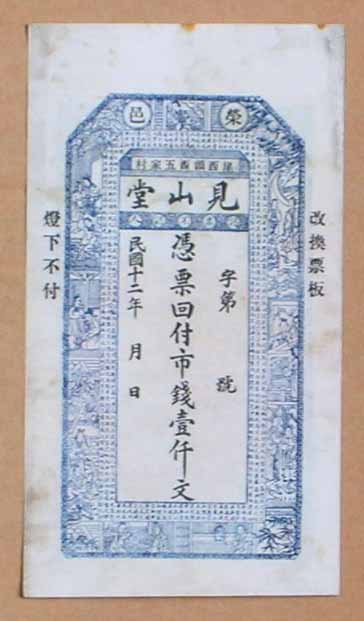 榮邑
見山堂
改換票板
字第 號
憑票回付市錢壹仟文
民國十二年 月 日
燈下不付